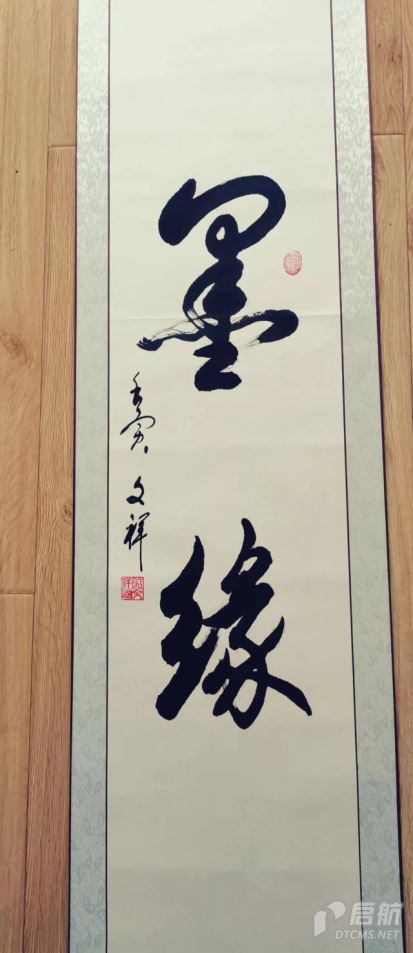 墨
缘
壬寅 文祥
启航
DTCMS.NET